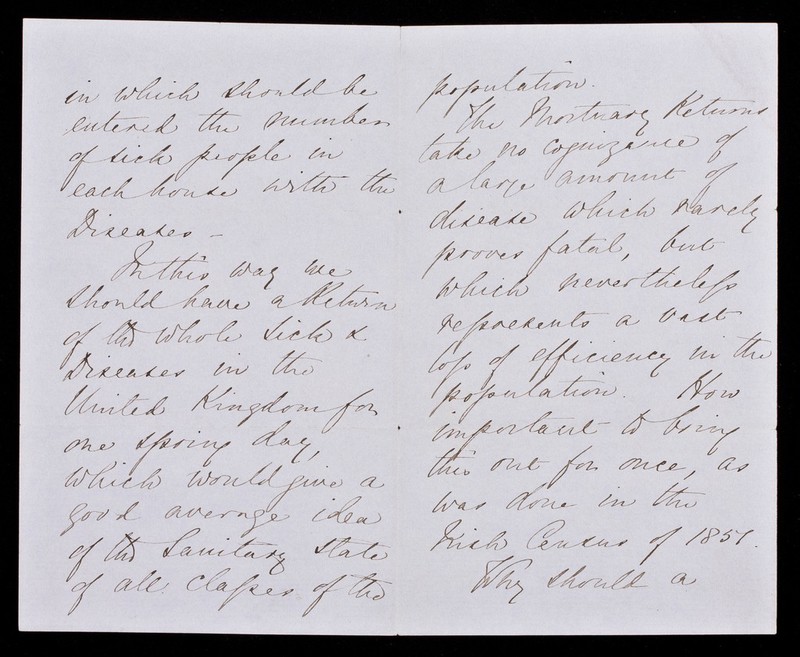 in which should be
entered the number
of sick people in
each house with the
Diseases –
In this way we
should have a Return
of the whole Sick &
Diseases in the
United Kingdom for
one spring day,
which would give a
good average idea
of the Sanitary State
of all classes of the
population.
The Mortuary Returns
take no cognizance of
a large amount of
disease which rarely
proves fatal, but
which nevertheless
represents a vast
loss of efficiency in the
population. How
important to bring
this out for once, as
was done in the
Irish Census of 1851.
Why should a